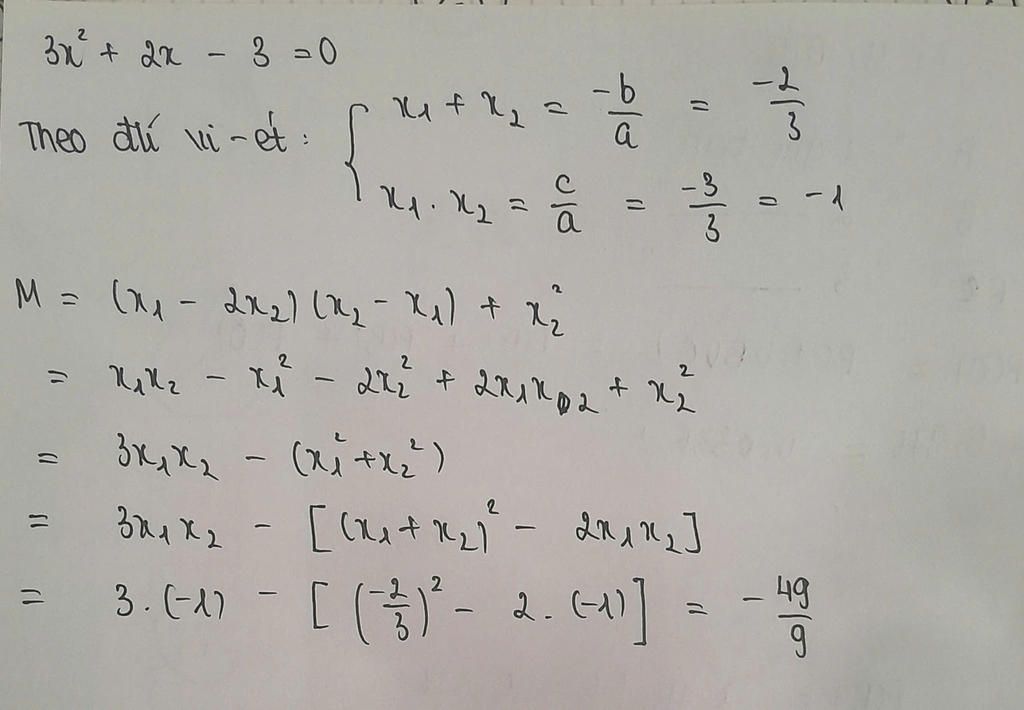 3x² + 2x - 3 = 0
Theo đlí vi-ét: { x₁ + x₂ = -b/a = -2/3
x₁ . x₂ = c/a = -3/3 = -1
M = (x₁ - 2x₂)(x₂ - x₁) + x₂²
= x₁x₂ - x₁² - 2x₂² + 2x₁x₂ + x₂²
= 3x₁x₂ - (x₁² + x₂²)
= 3x₁x₂ - [(x₁ + x₂)² - 2x₁x₂]
= 3 . (-1) - [(-2/3)² - 2 . (-1)] = -49/9